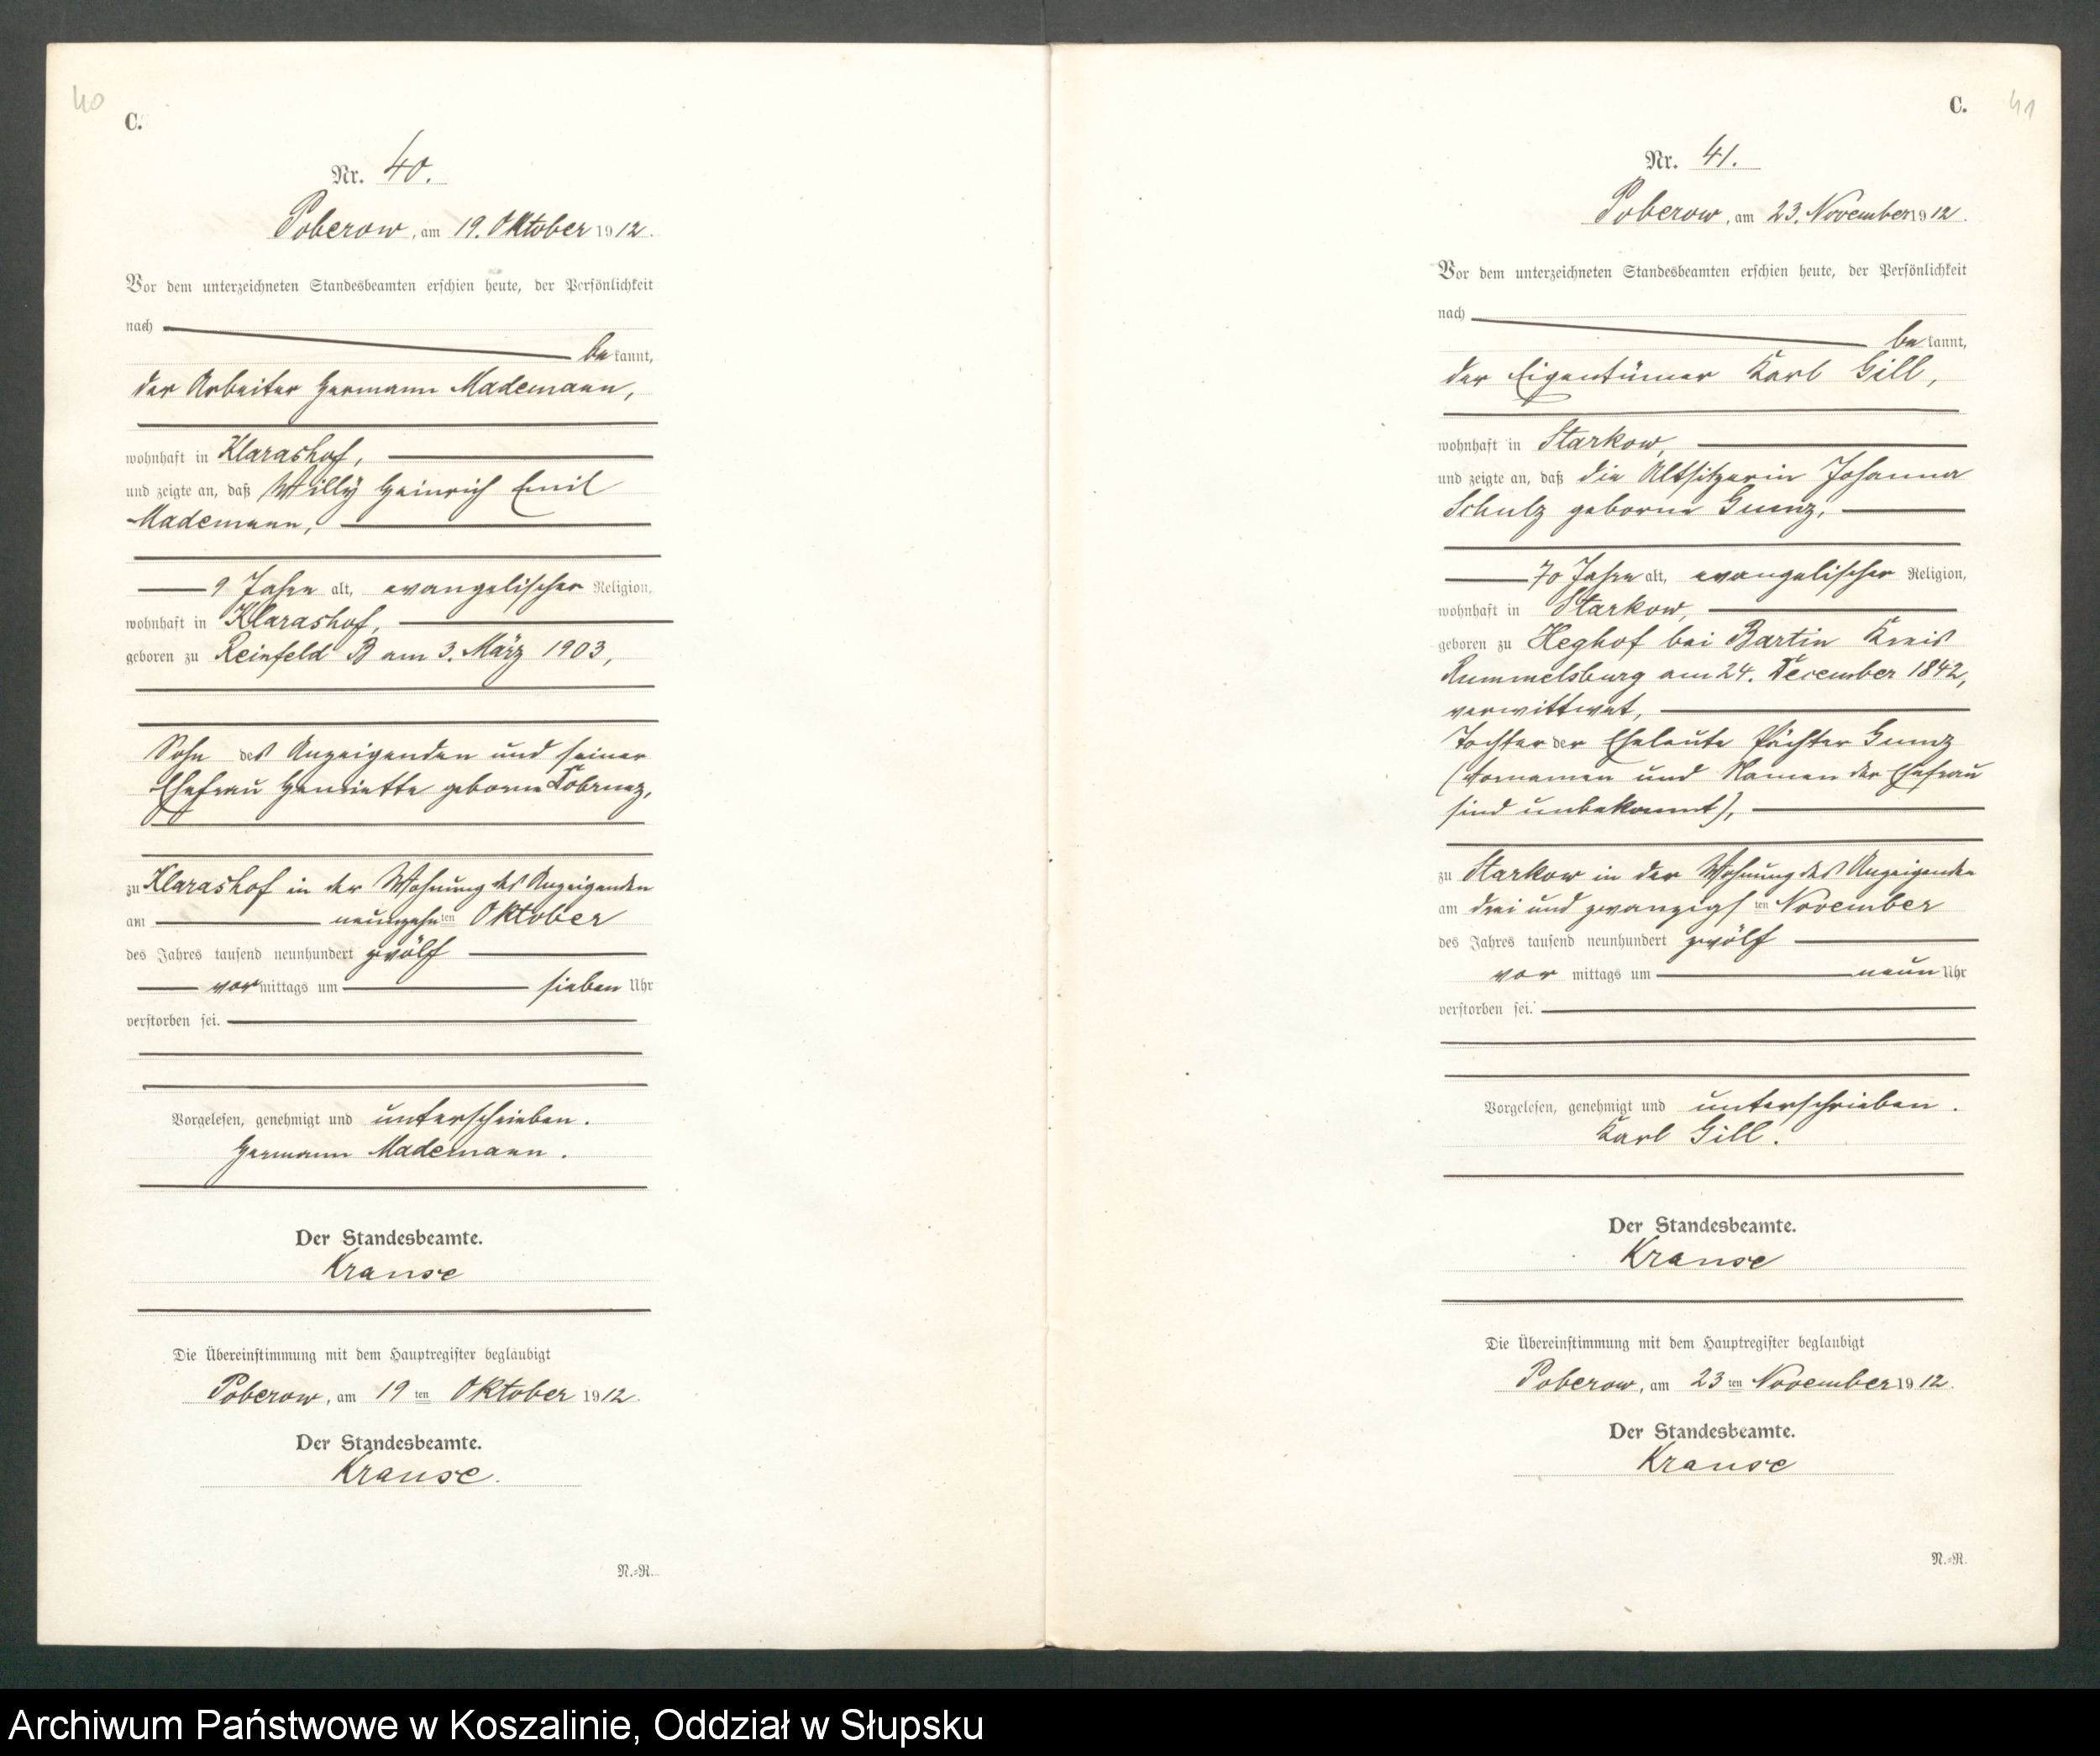 40
C.
Nr. 40.
Poberow, am 19. Oktober 1912.
Vor dem unterzeichneten Standesbeamten erschien heute, der Persönlichkeit
nach
bekannt,
der Arbeiter Hermann Mademann,
wohnhaft in Klarashof,
und zeigte an, daß Willy Heinrich Emil
Mademann,
9 Jahre alt, evangelischer Religion,
wohnhaft in Klarashof,
geboren zu Reinfeld B am 3. März 1903,
Sohn des Anzeigenden und seiner
Ehefrau Henriette geborne
zu Klarashof in der Wohnung des Anzeigenden
am neunzehnten Oktober
des Jahres tausend neunhundert zwölf
vormittags um sieben Uhr
verstorben sei.
Vorgelesen, genehmigt und unterschrieben.
Hermann Mademann.
Der Standesbeamte.
Krause
Die Übereinstimmung mit dem Hauptregister beglaubigt
Poberow, am 19ten Oktober 1912.
Der Standesbeamte.
Krause.
N.=R.
41
C.
Nr. 41.
Poberow, am 23. November 1912.
Vor dem unterzeichneten Standesbeamten erschien heute, der Persönlichkeit
nach
bekannt,
der Eigentümer Karl Gill,
wohnhaft in Starkow,
und zeigte an, daß die Altsitzerin Johanna
Schulz geborne Gumz,
70 Jahre alt, evangelischer Religion,
wohnhaft in Starkow,
geboren zu Heghof bei Bartin Kreis
Rummelsburg am 24. December 1842,
verwittwet,
Tochter der Eheleute Pächter Gumz
(Vornamen und Namen der Ehefrau
sind unbekannt),
zu Starkow in der Wohnung des Anzeigenden
am drei und zwanzigsten November
des Jahres tausend neunhundert zwölf
vor mittags um neun Uhr
verstorben sei.
Vorgelesen, genehmigt und unterschrieben.
Karl Gill.
Der Standesbeamte.
Krause
Die Übereinstimmung mit dem Hauptregister beglaubigt
Poberow, am 23ten November 1912.
Der Standesbeamte.
Krause
N.=R.
Archiwum Państwowe w Koszalinie, Oddział w Słupsku